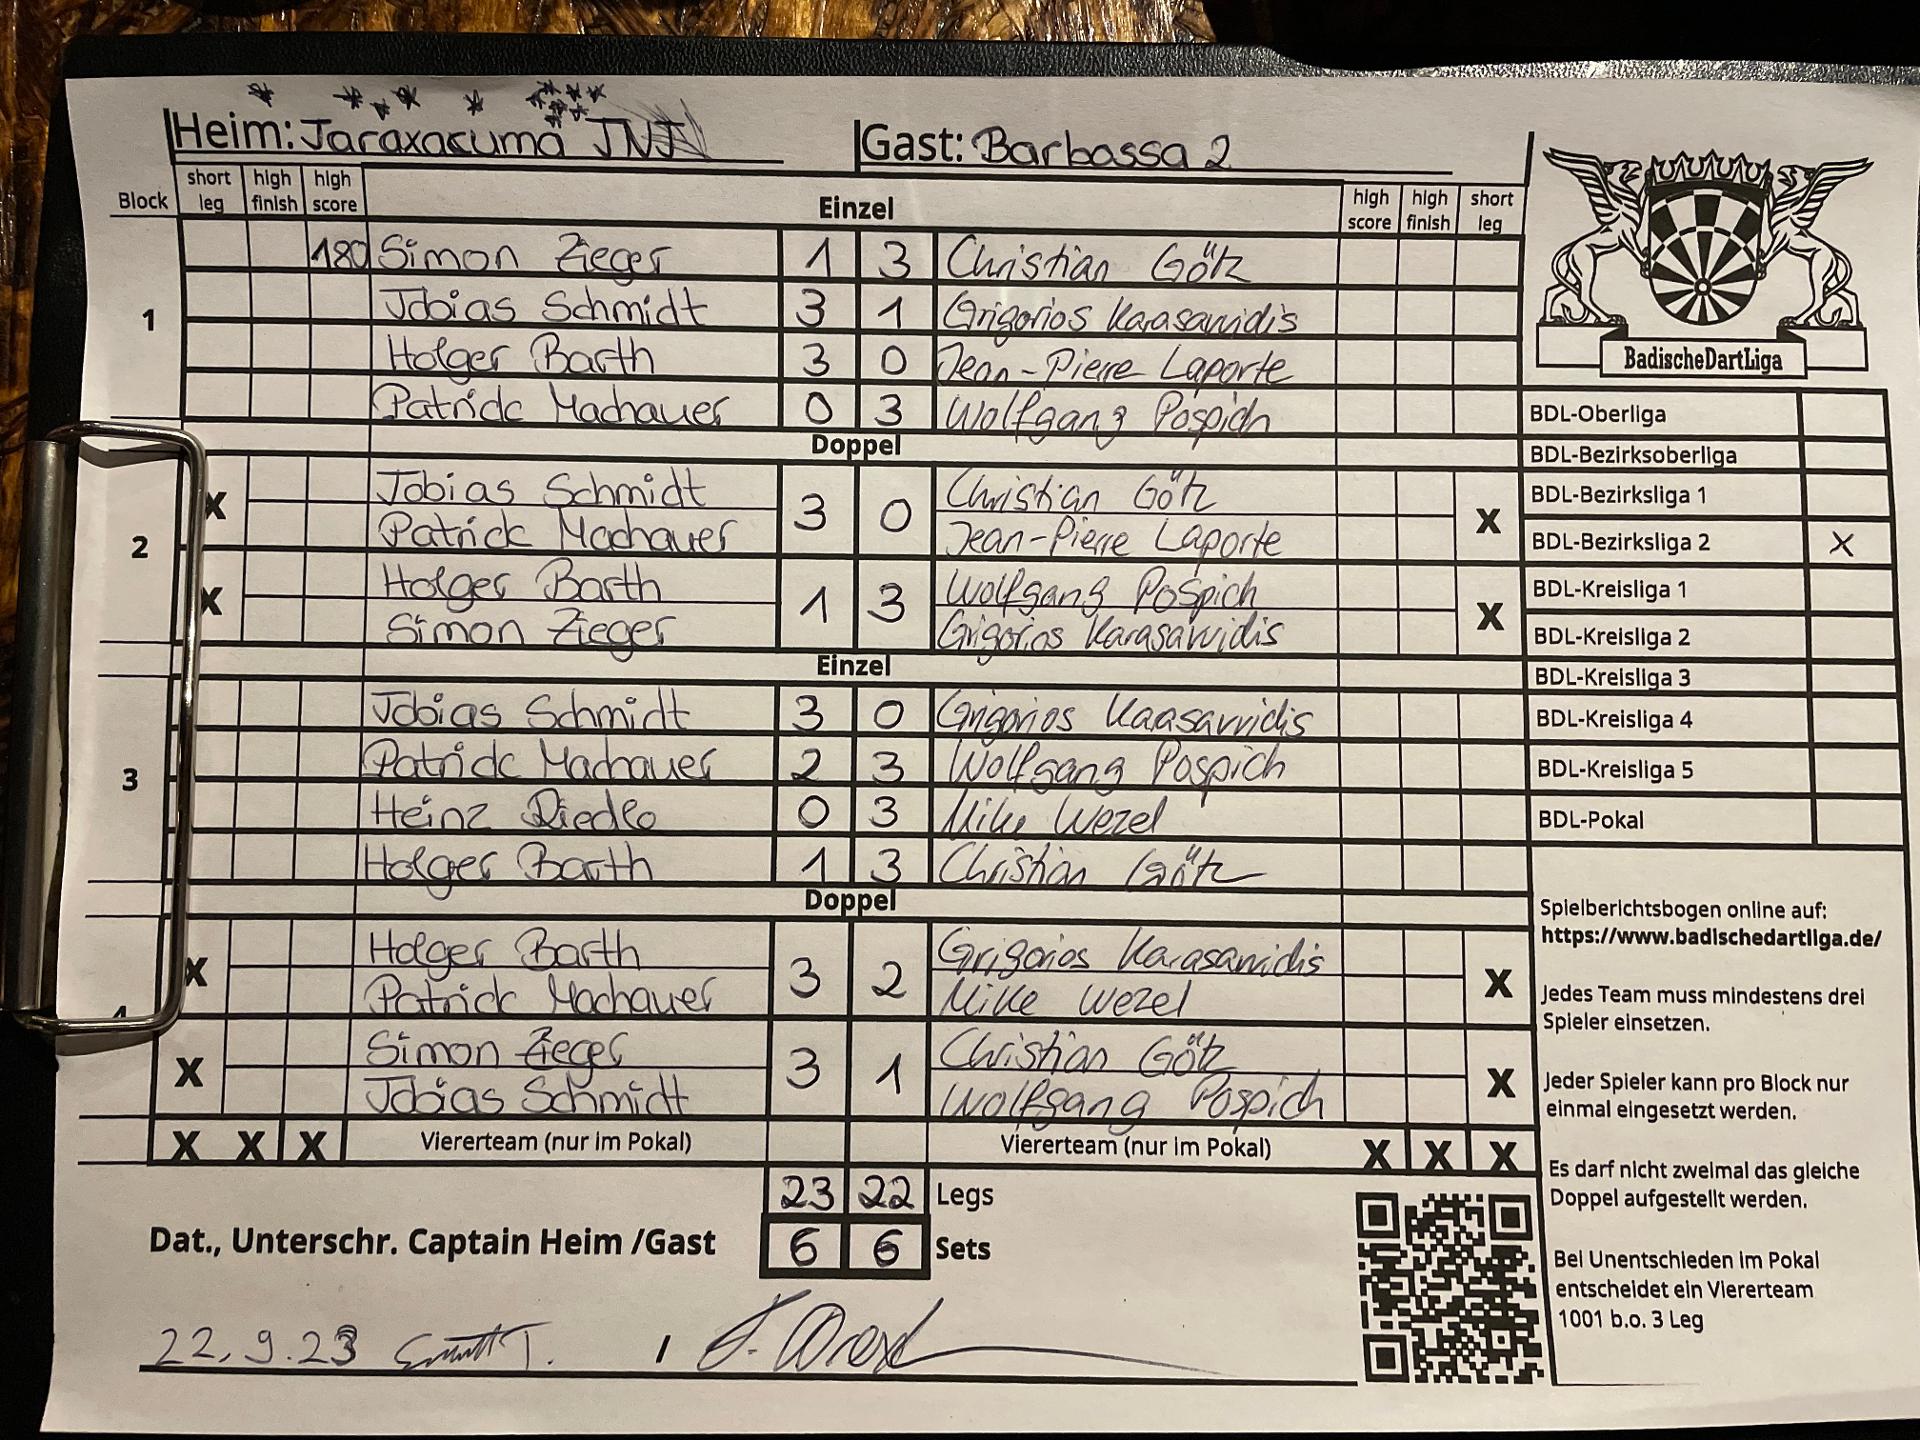 Heim: Taraxacuma TNT Gast: Barbossa 2
Block short leg high finish high score Einzel high score high finish short leg
1
180 Simon Zieger 1 3 Christian Götz
Tobias Schmidt 3 1 Grigorios Karasavvidis
Holger Barth 3 0 Jean-Pierre Laporte
Patrick Machauer 0 3 Wolfgang Pospich
Doppel
2
X Tobias Schmidt 3 0 Christian Götz X
Patrick Machauer Jean-Pierre Laporte
X Holger Barth 1 3 Wolfgang Pospich X
Simon Zieger Grigorios Karasavvidis
Einzel
3
Tobias Schmidt 3 0 Grigorios Karasavvidis
Patrick Machauer 2 3 Wolfgang Pospich
Heinz Riedle 0 3 Mike Wezel
Holger Barth 1 3 Christian Götz
Doppel
4
X Holger Barth 3 2 Grigorios Karasavvidis X
Patrick Machauer Mike Wezel
X Simon Zieger 3 1 Christian Götz X
Tobias Schmidt Wolfgang Pospich
X X X Viererteam (nur im Pokal) Viererteam (nur im Pokal) X X X
23 22 Legs
Dat., Unterschr. Captain Heim /Gast 6 6 Sets
22.9.23 /
BadischeDartLiga
BDL-Oberliga
BDL-Bezirksoberliga
BDL-Bezirksliga 1
BDL-Bezirksliga 2 X
BDL-Kreisliga 1
BDL-Kreisliga 2
BDL-Kreisliga 3
BDL-Kreisliga 4
BDL-Kreisliga 5
BDL-Pokal
Spielberichtsbogen online auf:
https://www.badischedartliga.de/
Jedes Team muss mindestens drei
Spieler einsetzen.
Jeder Spieler kann pro Block nur
einmal eingesetzt werden.
Es darf nicht zweimal das gleiche
Doppel aufgestellt werden.
Bei Unentschieden im Pokal
entscheidet ein Viererteam
1001 b.o. 3 Leg